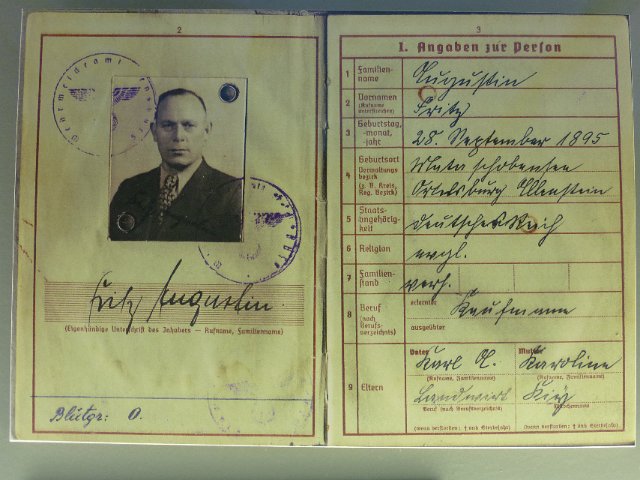 2
Fritz Augustin.
(Eigenhändige Unterschrift des Inhabers — Rufname, Familienname)
Blutgr: O.
3
I. Angaben zur Person
1 Familien-
name
Augustin
2 Vornamen
(Rufname
unterstreichen)
Fritz
3 Geburtstag,
-monat,
-jahr
28. September 1895
4 Geburtsort
Verwaltungs-
bezirk
(z. B. Kreis,
Reg. Bezirk)
Ortelsburg Allenstein
5 Staats-
angehörig-
keit
Deutsches Reich
6 Religion
evgl.
7 Familien-
stand
verh.
8 Beruf
(nach
Berufs-
verzeichnis)
erlernter
Kaufmann
ausgeübter
9 Eltern
Vater Mutter
Karl A. Karoline
(Rufname, Familienname) (Rufname, Familienname)
Landwirt
Beruf (nach Berufsverzeichnis)
(wenn verstorben: † und Sterbejahr) (wenn verstorben: † und Sterbejahr)